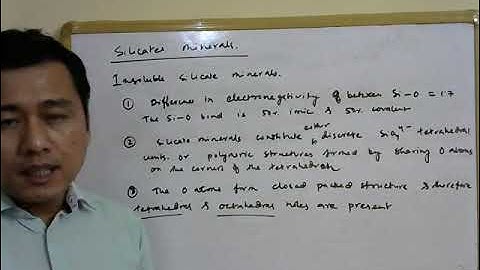 Silicates minerals.
Insoluble Silicate minerals.
① Difference in electronegetivity of between Si-O = 1.7
The Si-O bond is 50% ionic & 50% covalent
② Silicate minerals constitute either discrete SiO₄⁴⁻ tetrahedral
units, or polymeric structures formed by sharing O atoms
on the corners of the tetrahedrals
③ The O atoms form closed packed structure & therefore
tetrahedral & octahedral holes are present